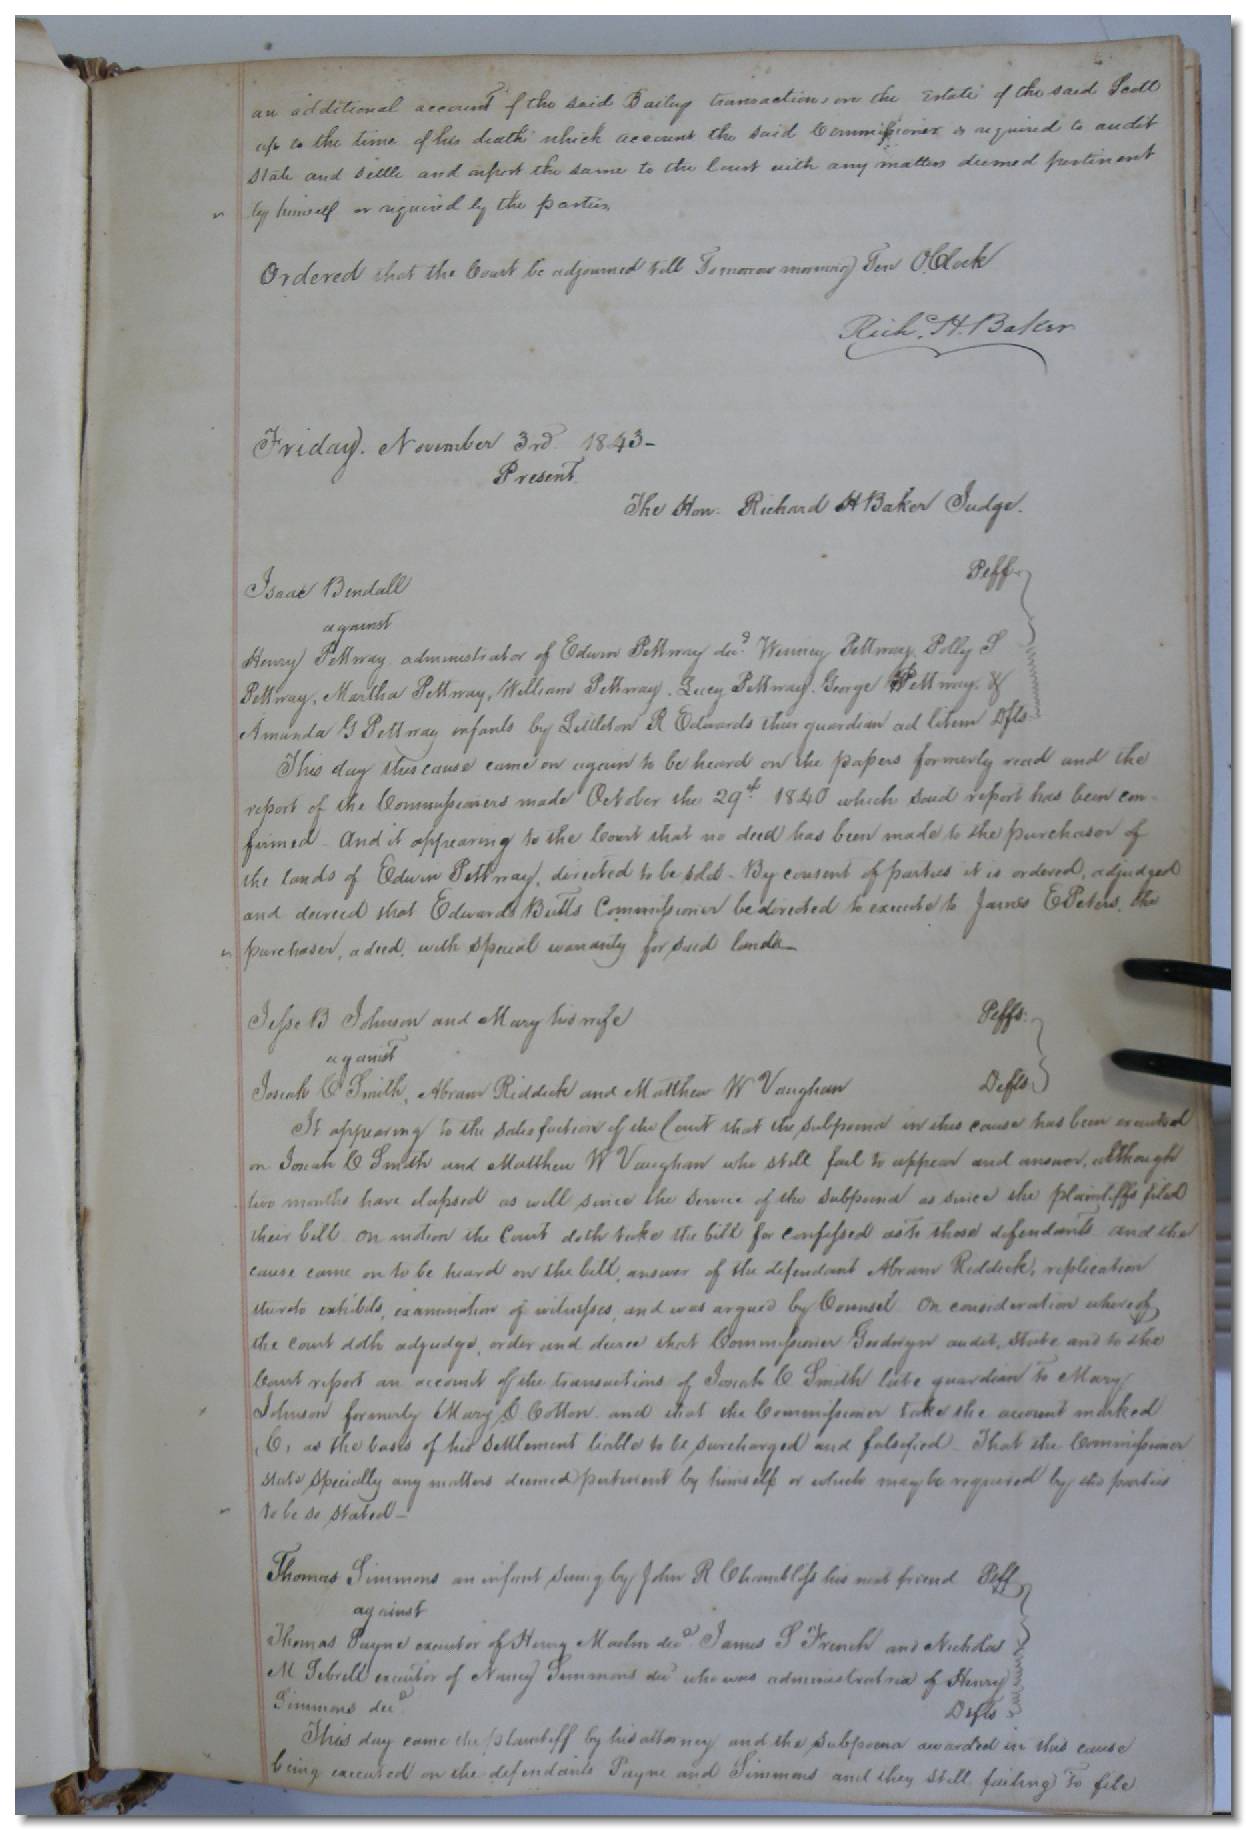 an additional account of the said Bailey transactions on the Estate of the said Scott
up to the time of his death which account the said Commissioner is required to audit
state and settle and report the same to the Court with any matters deemed pertinent
by himself or required by the parties
Ordered that the Court be adjourned till Tomorrow morning Ten O.Clock
Rich. H. Baker
Friday. November 3rd 1843-
Present
The Hon. Richard H Baker Judge.
Isaac Bendall Plff.
against
Henry Pettway administrator of Edwin Pettway decd Winney Pettway, Polly S
Pettway, Martha Pettway, William Pettway, Lucy Pettway, George Pettway, &
Amanda G Pettway infants by Littleton R Edwards their guardian ad litem Dfts
This day this cause came on again to be heard on the papers formerly read and the
report of the Commissioners made October the 29th 1840 which said report has been con-
firmed - And it appearing to the Court that no deed has been made to the purchaser of
the lands of Edwin Pettway, directed to be sold - By consent of parties it is ordered, adjudged
and decreed that Edwards Butts Commissioner be directed to execute to James E Peters, the
purchaser, a deed, with special warranty for said lands
Jesse B Johnson and Mary his wife Plffs.
against
Josiah C Smith, Abram Riddick and Matthew W Vaughan Defts
It appearing to the satisfaction of the Court that the subpoena in this cause has been executed
on Josiah C Smith and Matthew W Vaughan who still fail to appear and answer, although
two months have elapsed as well since the service of the subpoena as since the plaintiffs filed
their bill on motion the Court doth take the bill for confessed as to those defendants and the
cause came on to be heard on the bill, answer of the defendant Abram Riddick, replication
thereto exhibits, examination of witnesses, and was argued by Counsel On consideration whereof
the court doth adjudge, order and decree that Commissioner Goodwyn audit, state and to the
Court report an account of the transactions of Josiah C Smith late guardian to Mary
Johnson formerly Mary Cotton and that the Commissioner take the account marked
C, as the basis of his settlement liable to be surcharged and falsified - That the Commissioner
state specially any matters deemed pertinent by himself or which may be required by the parties
to be so stated -
Thomas Simmons an infant suing by John R Chambliss his next friend Plff
against
Thomas Payne executor of Henry decd James S French and Nicholas
M Sebrell executor of Nancy Simmons decd who was administratrix of Henry
Simmons decd Defts
This day came the plaintiff by his attorney and the subpoena awarded in this cause
being executed on the defendants Payne and Simmons and they still failing to file